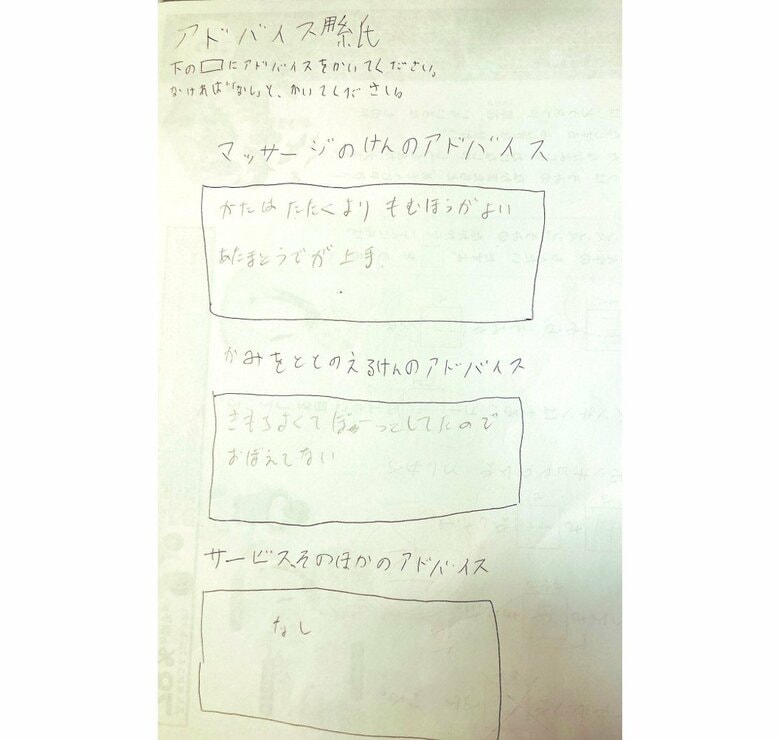 アドバイス用紙
下の□にアドバイスをかいてください。
なければ「なし」と、かいてください。
マッサージのけんのアドバイス
かたは たたくより もむほうがよい
あたまとうでが 上手
かみをととのえるけんのアドバイス
きもちよくて ぼーっとしてたので
おぼえてない
サービス、そのほかのアドバイス
なし